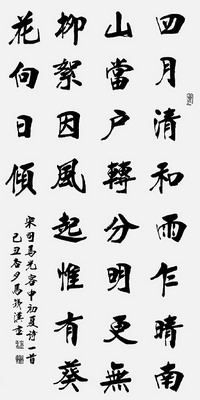 四月清和雨乍晴南
山當户轉分明更無
柳絮因風起惟有葵
花向日傾
宋司馬光客中初夏詩一首
己丑夕馬漢書